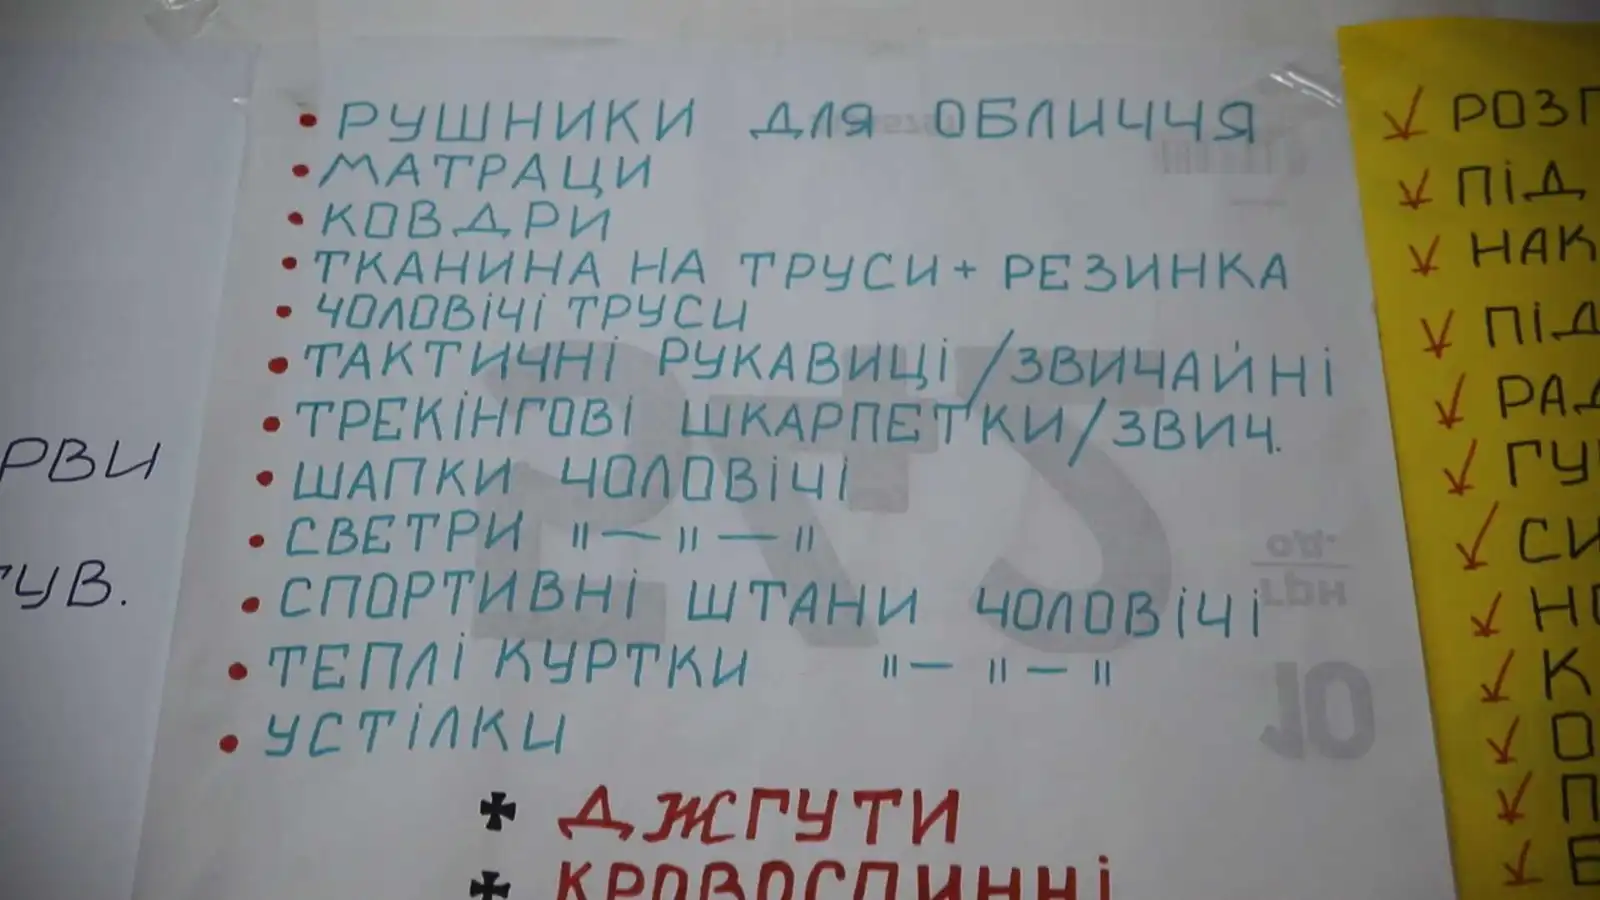 • РУШНИКИ ДЛЯ ОБЛИЧЧЯ
• МАТРАЦИ
• КОВДРИ
• ТКАНИНА НА ТРУСИ + РЕЗИНКА
• ЧОЛОВІЧІ ТРУСИ
• ТАКТИЧНІ РУКАВИЦІ / ЗВИЧАЙНІ
• ТРЕКІНГОВІ ШКАРПЕТКИ / ЗВИЧ.
• ШАПКИ ЧОЛОВІЧІ
• СВЕТРИ "—"—"
• СПОРТИВНІ ШТАНИ ЧОЛОВІЧІ
• ТЕПЛІ КУРТКИ "—"—"
• УСТІЛКИ
ДЖГУТИ
КРОВОСПИННІ
РВИ
ГУВ.
РОЗП
ПІД
НАК
ПІД
РАД
СИ
НО
К
О
П